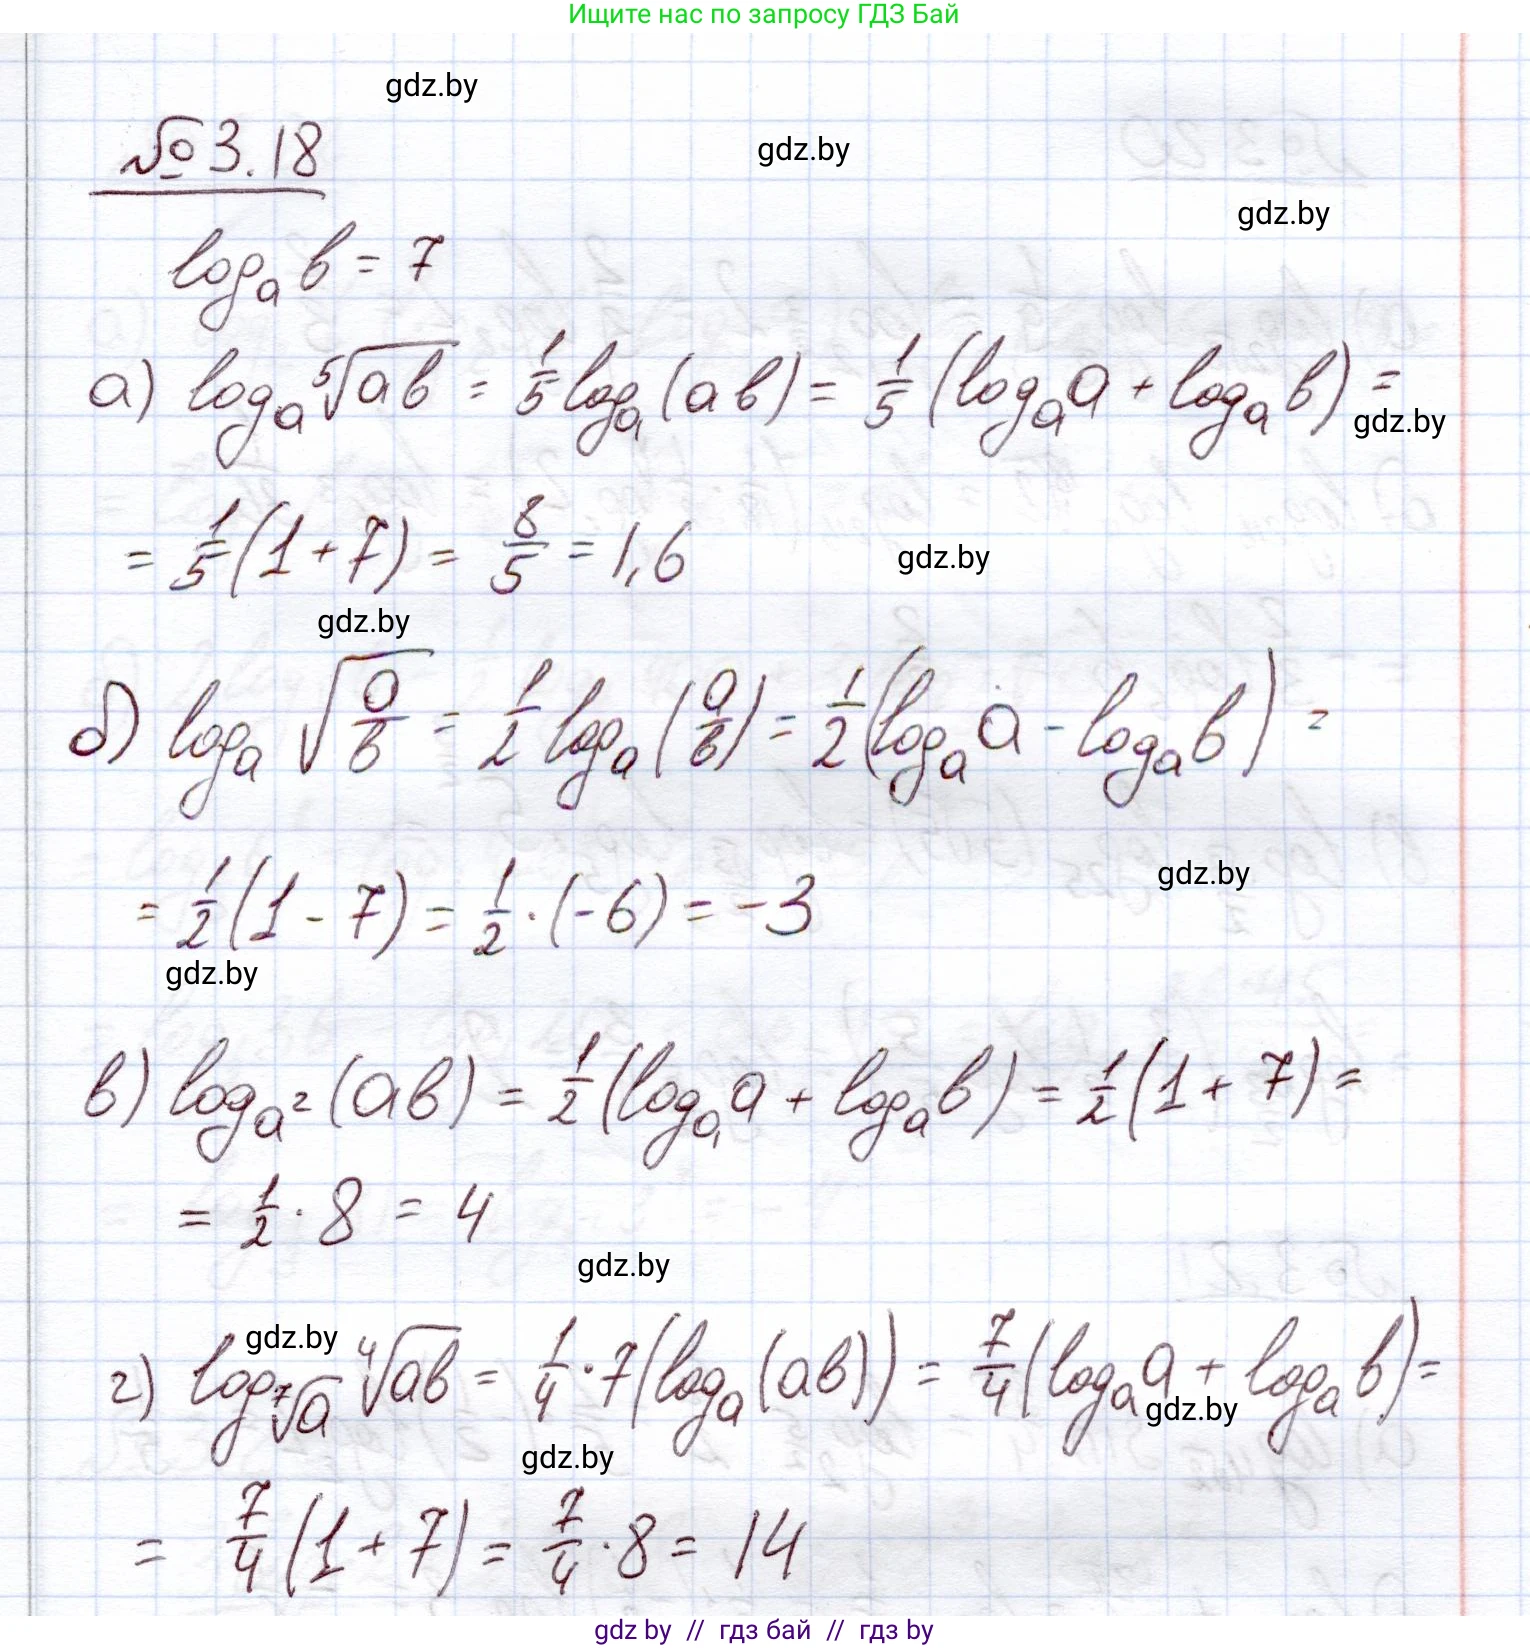 Ищите нас по запросу ГДЗ Бай
gdz.by
№3.18
gdz.by
gdz.by
logₐ b = 7
а) logₐ ⁵√(ab) = 1/5 logₐ(ab) = 1/5 (logₐ a + logₐ b) =
gdz.by
= 1/5 (1 + 7) = 8/5 = 1,6
gdz.by
gdz.by
б) logₐ √(a/b) = 1/2 logₐ(a/b) = 1/2 (logₐ a - logₐ b) =
= 1/2 (1 - 7) = 1/2 · (-6) = -3
gdz.by
gdz.by
в) log_{a²} (ab) = 1/2 (logₐ a + logₐ b) = 1/2 (1 + 7) =
= 1/2 · 8 = 4
gdz.by
gdz.by
г) log_{⁷√a} ⁴√(ab) = 1/4 · 7 (logₐ (ab)) = 7/4 (logₐ a + logₐ b) =
gdz.by
gdz.by
= 7/4 (1 + 7) = 7/4 · 8 = 14
gdz by // гдз бай // гдз by